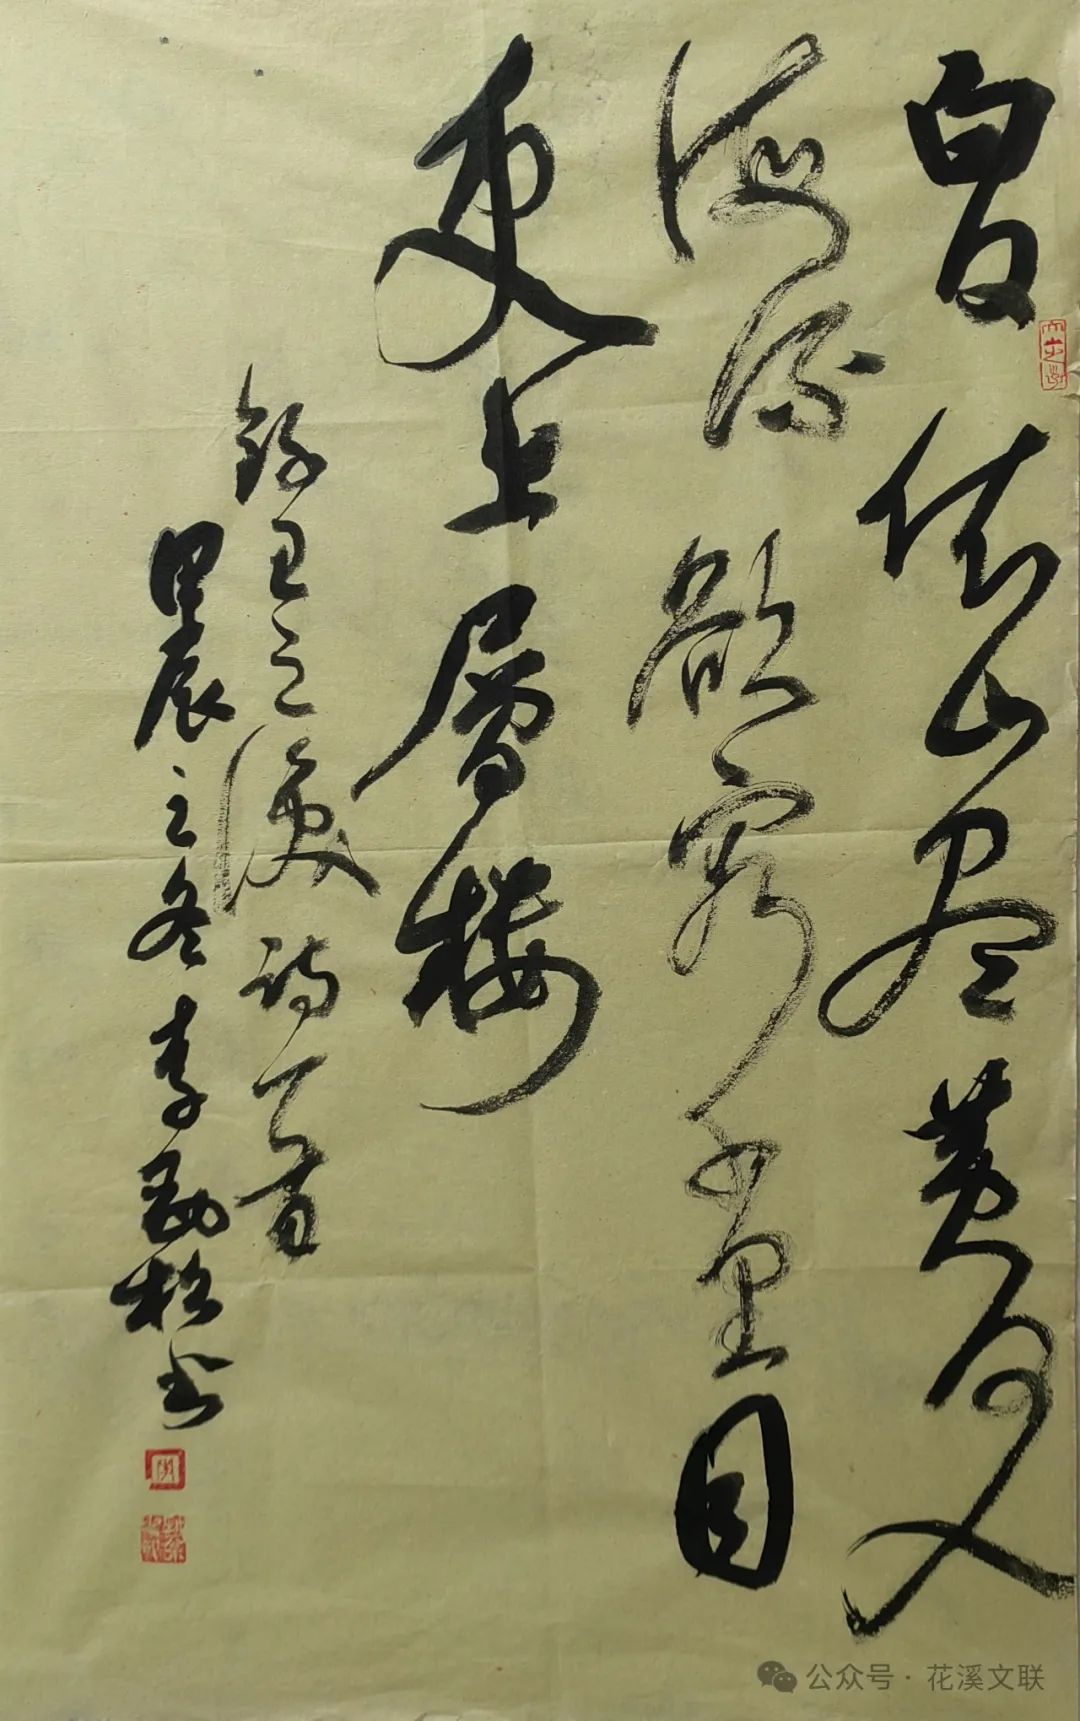 白日依山尽黄河入
海流欲穷千里目
更上層樓
録王之渙诗一首
甲辰之冬李劲松书
公众号 · 花溪文联